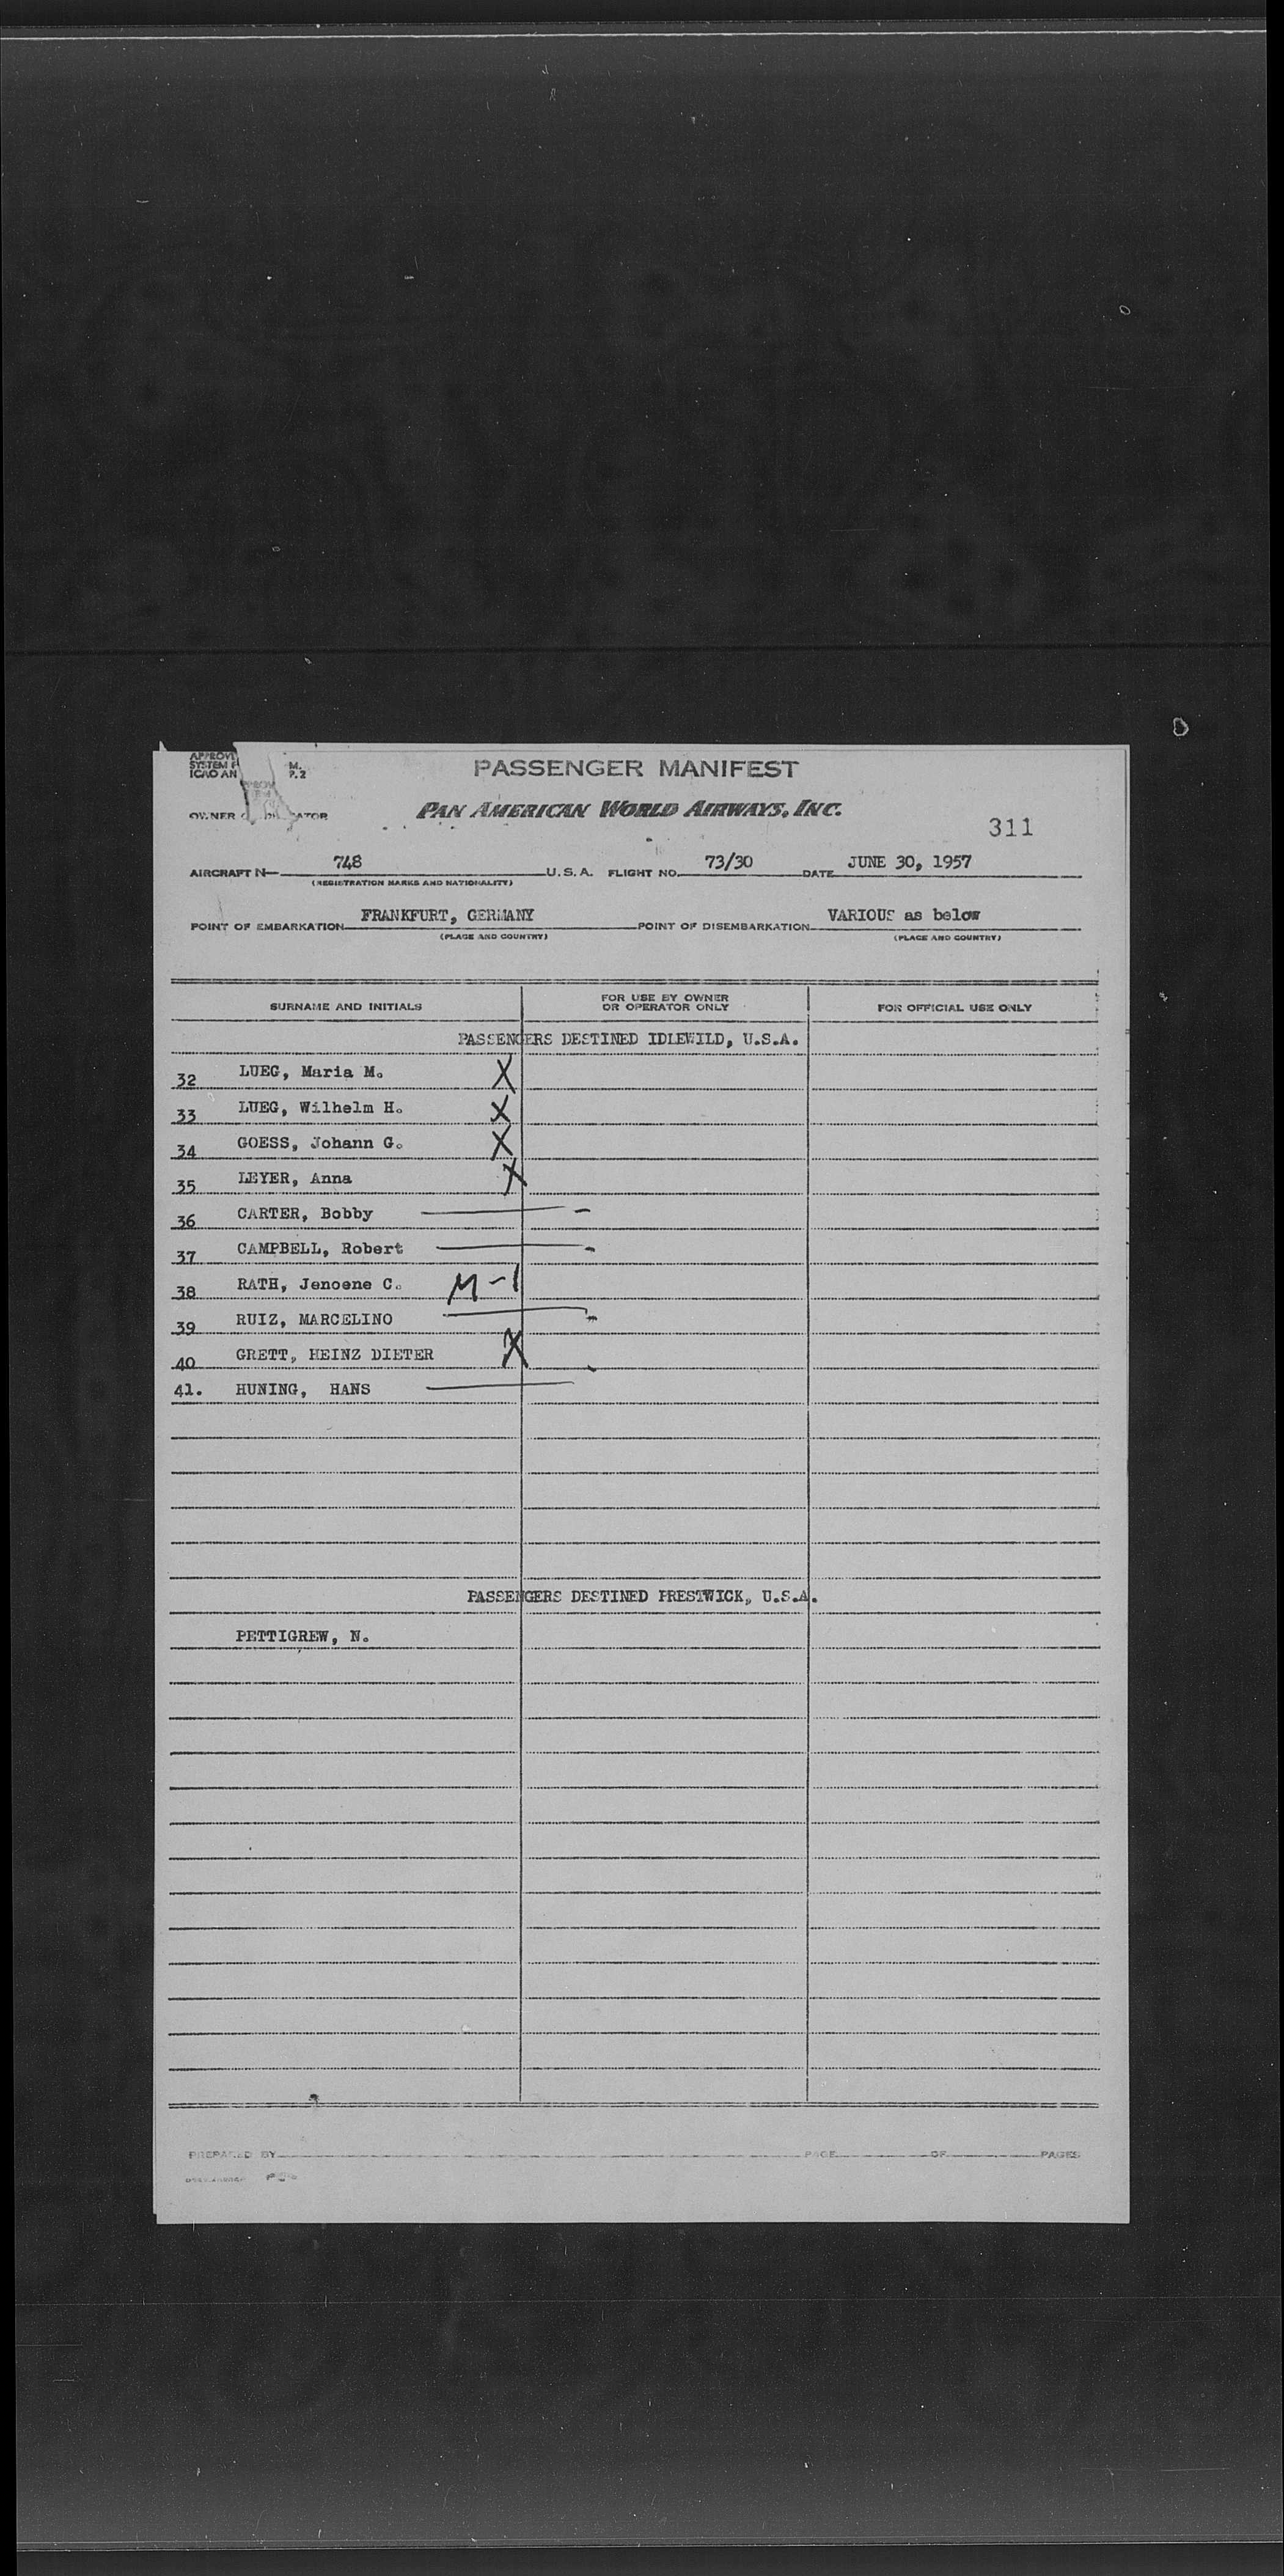 PASSENGER MANIFEST
ICAO AN P.2
OWNER
PAN AMERICAN WORLD AIRWAYS, INC.
311
AIRCRAFT N— 748 U.S.A. FLIGHT NO. 73/30 DATE JUNE 30, 1957
(REGISTRATION MARKS AND NATIONALITY)
POINT OF EMBARKATION FRANKFURT, GERMANY POINT OF DISEMBARKATION VARIOUS as below
(PLACE AND COUNTRY) (PLACE AND COUNTRY)
SURNAME AND INITIALS FOR USE BY OWNER OR OPERATOR ONLY FOR OFFICIAL USE ONLY
PASSENGERS DESTINED IDLEWILD, U.S.A.
32 LUEG, Maria M. X
33 LUEG, Wilhelm H. X
34 GOESS, Johann G. X
35 LEYER, Anna X
36 CARTER, Bobby
37 CAMPBELL, Robert
38 RATH, Jenoene C. M-1
39 RUIZ, MARCELINO
40 GRETT, HEINZ DIETER X
41. HUNING, HANS
PASSENGERS DESTINED PRESTWICK, U.S.A.
PETTIGREW, N.
PREPARED BY PAGE OF PAGES